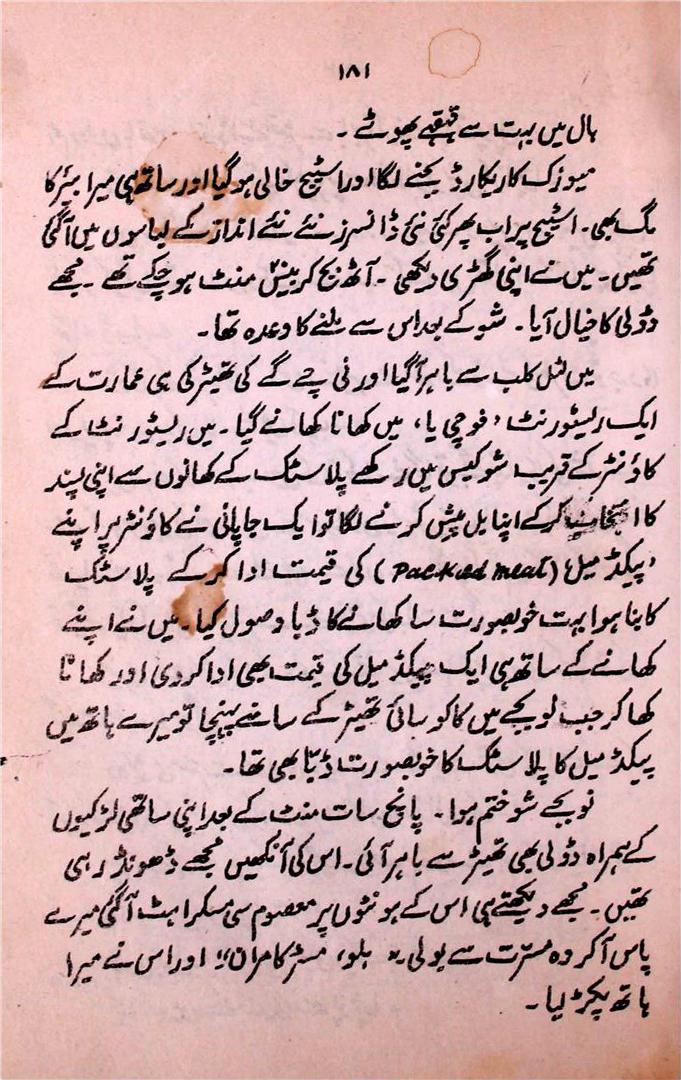 ۱۸۱
ہال میں بہت سے قہقہے پھوٹے ۔
میوزک کا ریکارڈ بجنے لگا اور اسٹیج خالی ہوگیا اور ساتھ ہی میرا بیئر کا
مگ بھی ۔ اسٹیج پر اب پھر کئی نئی ڈانسرز نئے نئے انداز کے لباسوں میں آگئی
تھیں ۔ میں نے اپنی گھڑی دیکھی ۔ آٹھ بج کر بیس منٹ ہو چکے تھے ۔ مجھے
ڈولی کا خیال آیا ۔ شو کے بعد اس سے ملنے کا وعدہ تھا ۔
میں نٹل کلب سے باہر آگیا اور نی چے گے کی تھیٹر کی ہی عمارت کے
ایک ریسٹورنٹ ، فوچی یا ، میں کھانا کھانے گیا ۔ میں ریسٹورنٹ کے
کاؤنٹر کے قریب شوکیس میں رکھے پلاسٹک کے کھانوں سے اپنی پسند
کا انتخاب کرکے اپنا بل پیش کرنے لگا تو ایک جاپانی نے کاؤنٹر پر اپنے
’پیکڈ میل‘ (Packed meal) کی قیمت ادا کر کے پلاسٹک
کا بنا ہوا بہت خوبصورت سا کھانے کا ڈبا وصول کیا ۔ میں نے اپنے
کھانے کے ساتھ ہی ایک پیکڈ میل کی قیمت بھی ادا کردی اور کھانا
کھا کر جب لو بجے میں کا کوسائی تھیٹر کے سامنے پہنچا تو میرے ہاتھ میں
پیکڈ میل کا پلاسٹک کا خوبصورت ڈبّا بھی تھا ۔
نو بجے شو ختم ہوا ۔ پانچ سات منٹ کے بعد اپنی ساتھی لڑکیوں
کے ہمراہ ڈولی بھی تھیٹر سے باہر آئی ۔ اس کی آنکھیں مجھے ڈھونڈ رہی
تھیں ۔ مجھے دیکھتے ہی اس کے ہونٹوں پر معصوم سی مسکراہٹ آگئی میرے
پاس آکر وہ مسرّت سے بولی ۔ ” ہلو ، مسٹر کامران !“ اور اس نے میرا
ہاتھ پکڑ لیا ۔